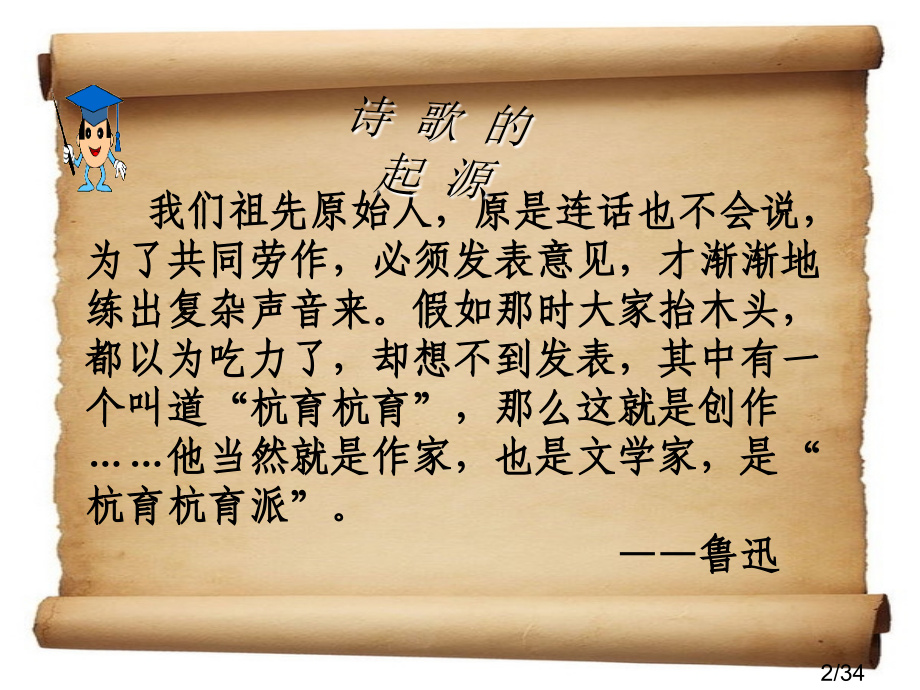 诗歌的
起源
我们祖先原始人，原是连话也不会说，
为了共同劳作，必须发表意见，才渐渐地
练出复杂声音来。假如那时大家抬木头，
都以为吃力了，却想不到发表，其中有一
个叫道“杭育杭育”，那么这就是创作
……他当然就是作家，也是文学家，是“
杭育杭育派”。
——鲁迅
2/34